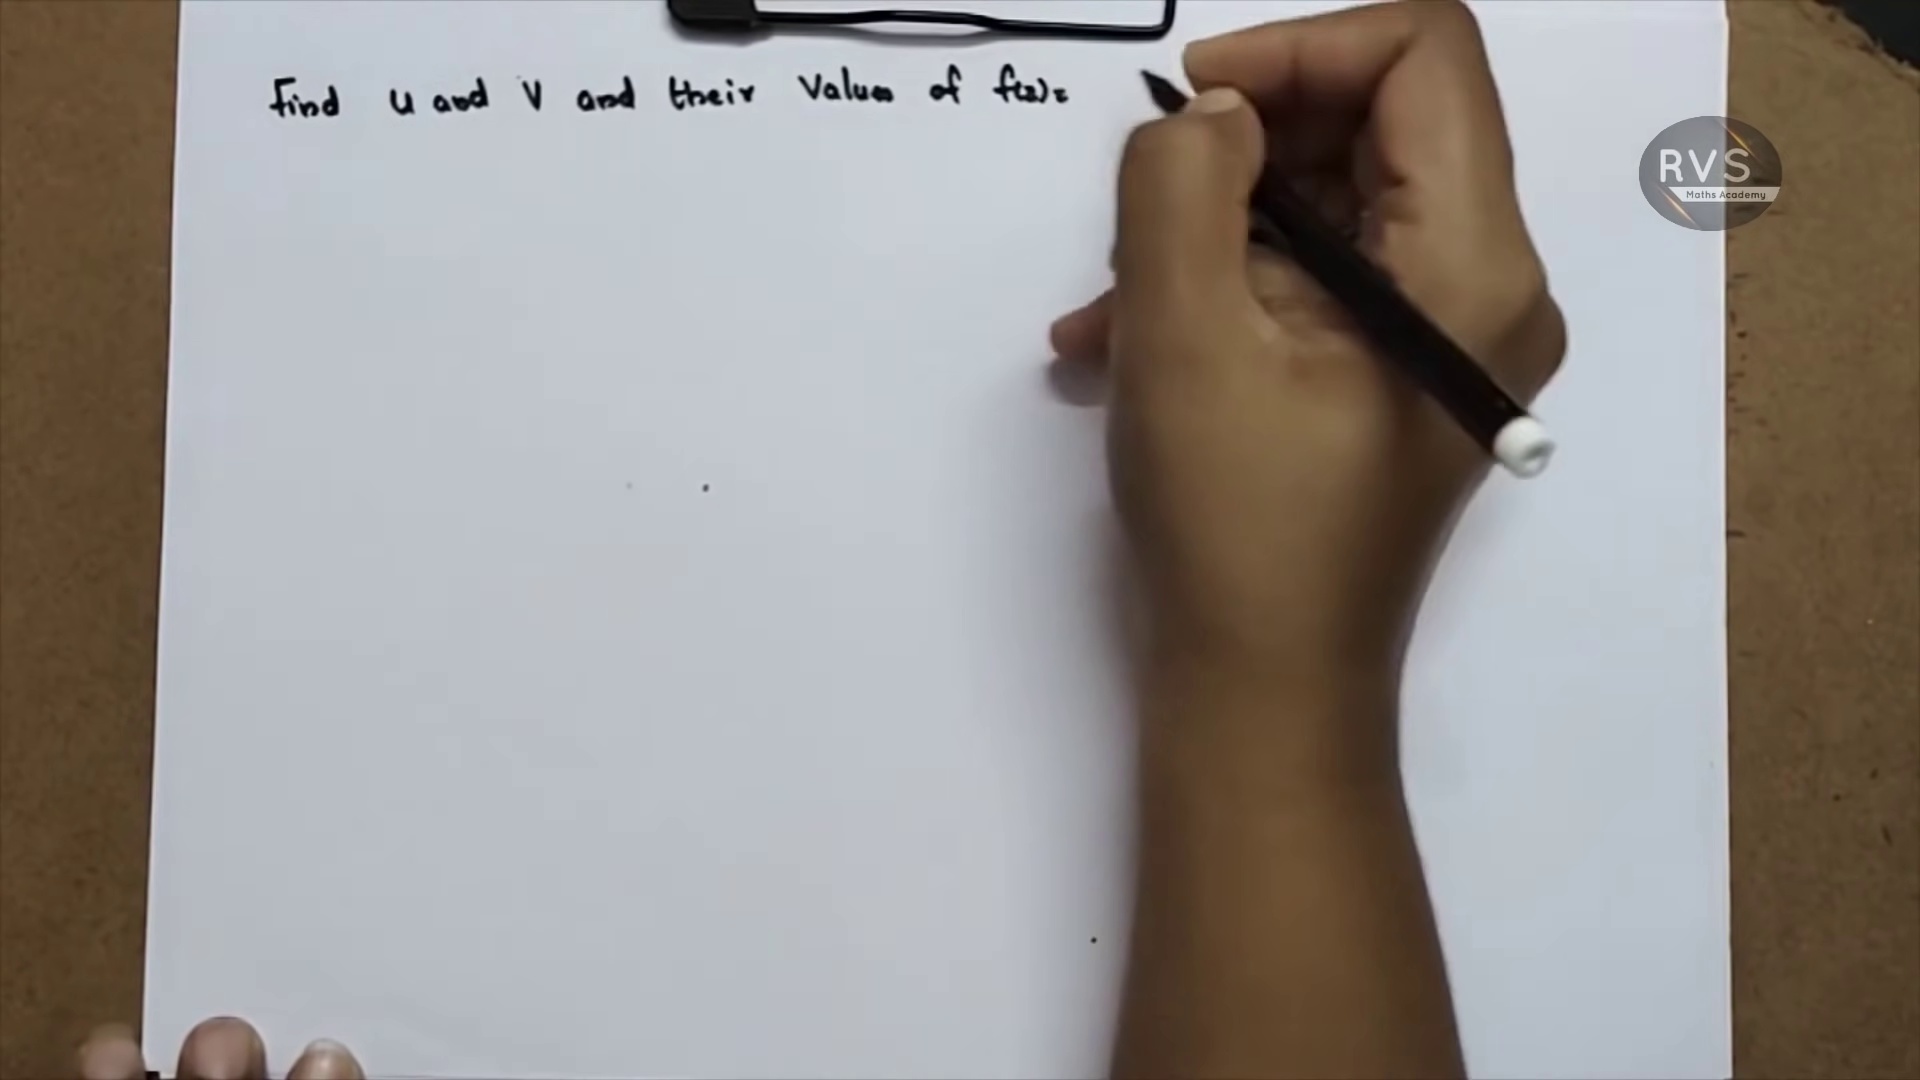 Find u and v and their values of f(z)=
RVS
Maths Academy